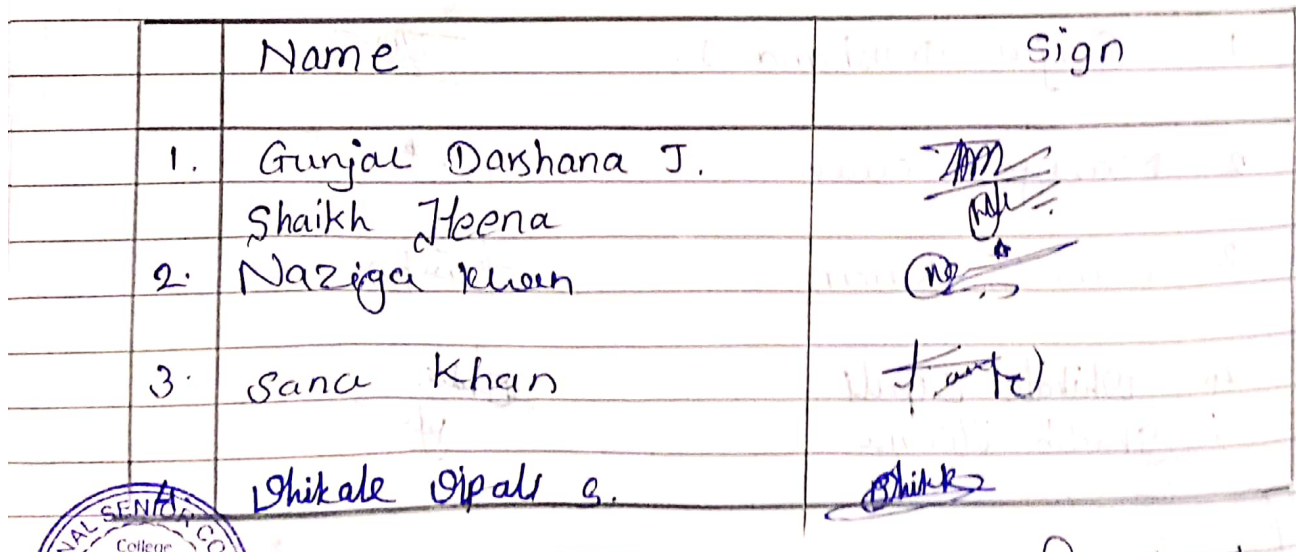 Name Sign
1. Gunjal Darshana J.
Shaikh Heena
2. Naziya Khan
3. Sana Khan
4. Dhikale Dipali S.
NAL SENIOR CO
College